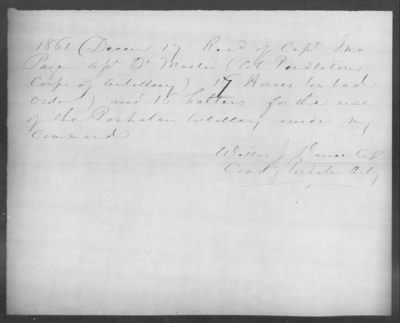 1861 (Decem 17 Recd of Capt Jno
Page Apt Qr Master (Col Pendletons
Corps of Artillery) 17 Horses (in bad
order) and 12 halters for the use
of the Powhatan Artillery under my
Command
Willis J Dance Capt
Comdg Powhatan Arty